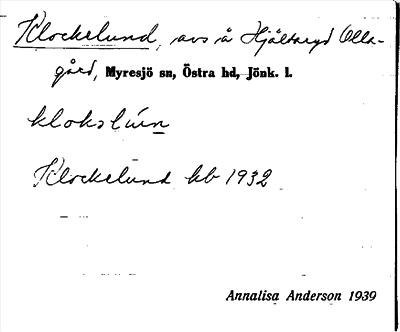 Klockelund, avs å Hjältaryd Olla-
gård, Myresjö sn, Östra hd, Jönk. l.
klokslún
Klockelund kb 1932
Annalisa Anderson 1939